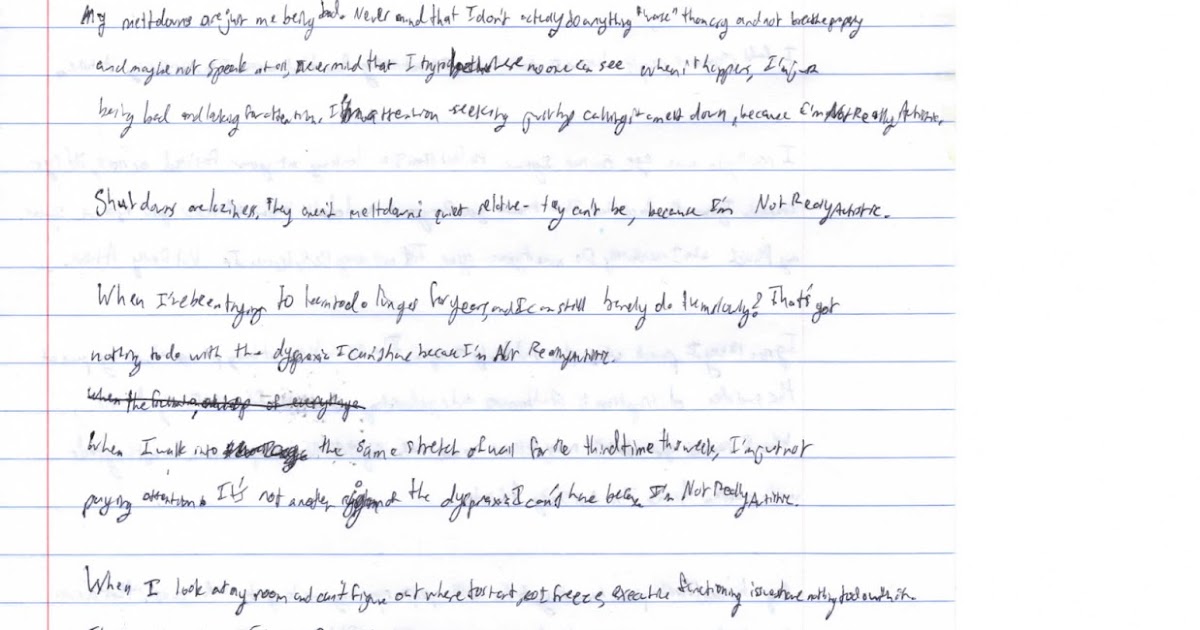 My meltdowns are just me being bad. Never mind that I don't actually do anything "worse" than cry and not breathe properly
and maybe not speak at all, never mind that I try no one can see when it happens, I'm just
being bad and looking for attention. I'm attention seeking calling it a melt down, because I'm Not Really Autistic.
Shutdowns are laziness. They aren't meltdown's quiet relative - they can't be, because I'm Not Really Autistic.
When I've been trying to learn to do a lunges for years, and I can still barely do them slowly? That's got
nothing to do with the dyspraxia I can't have because I'm Not Really Autistic.
When the of everything
When I walk into the same stretch of wall for the third time this week, I'm just not
paying attention. It's not another sign of the dyspraxia I can't have because I'm Not Really Autistic.
When I look at my room and can't figure out where to start, so I freeze, executive functioning issues have nothing to do with it.